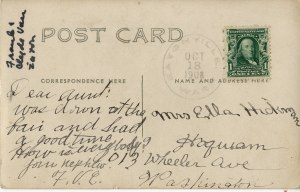 Frank &
Clyde Van
POST CARD
OCT
18
CORRESPONDENCE HERE
NAME AND ADDRESS HERE
Dear Aunt:
was down at the
fair and had
a good time
How is everybody?
John nephew
Mrs Ella
Hoquiam
Wheeler Ave
Washington